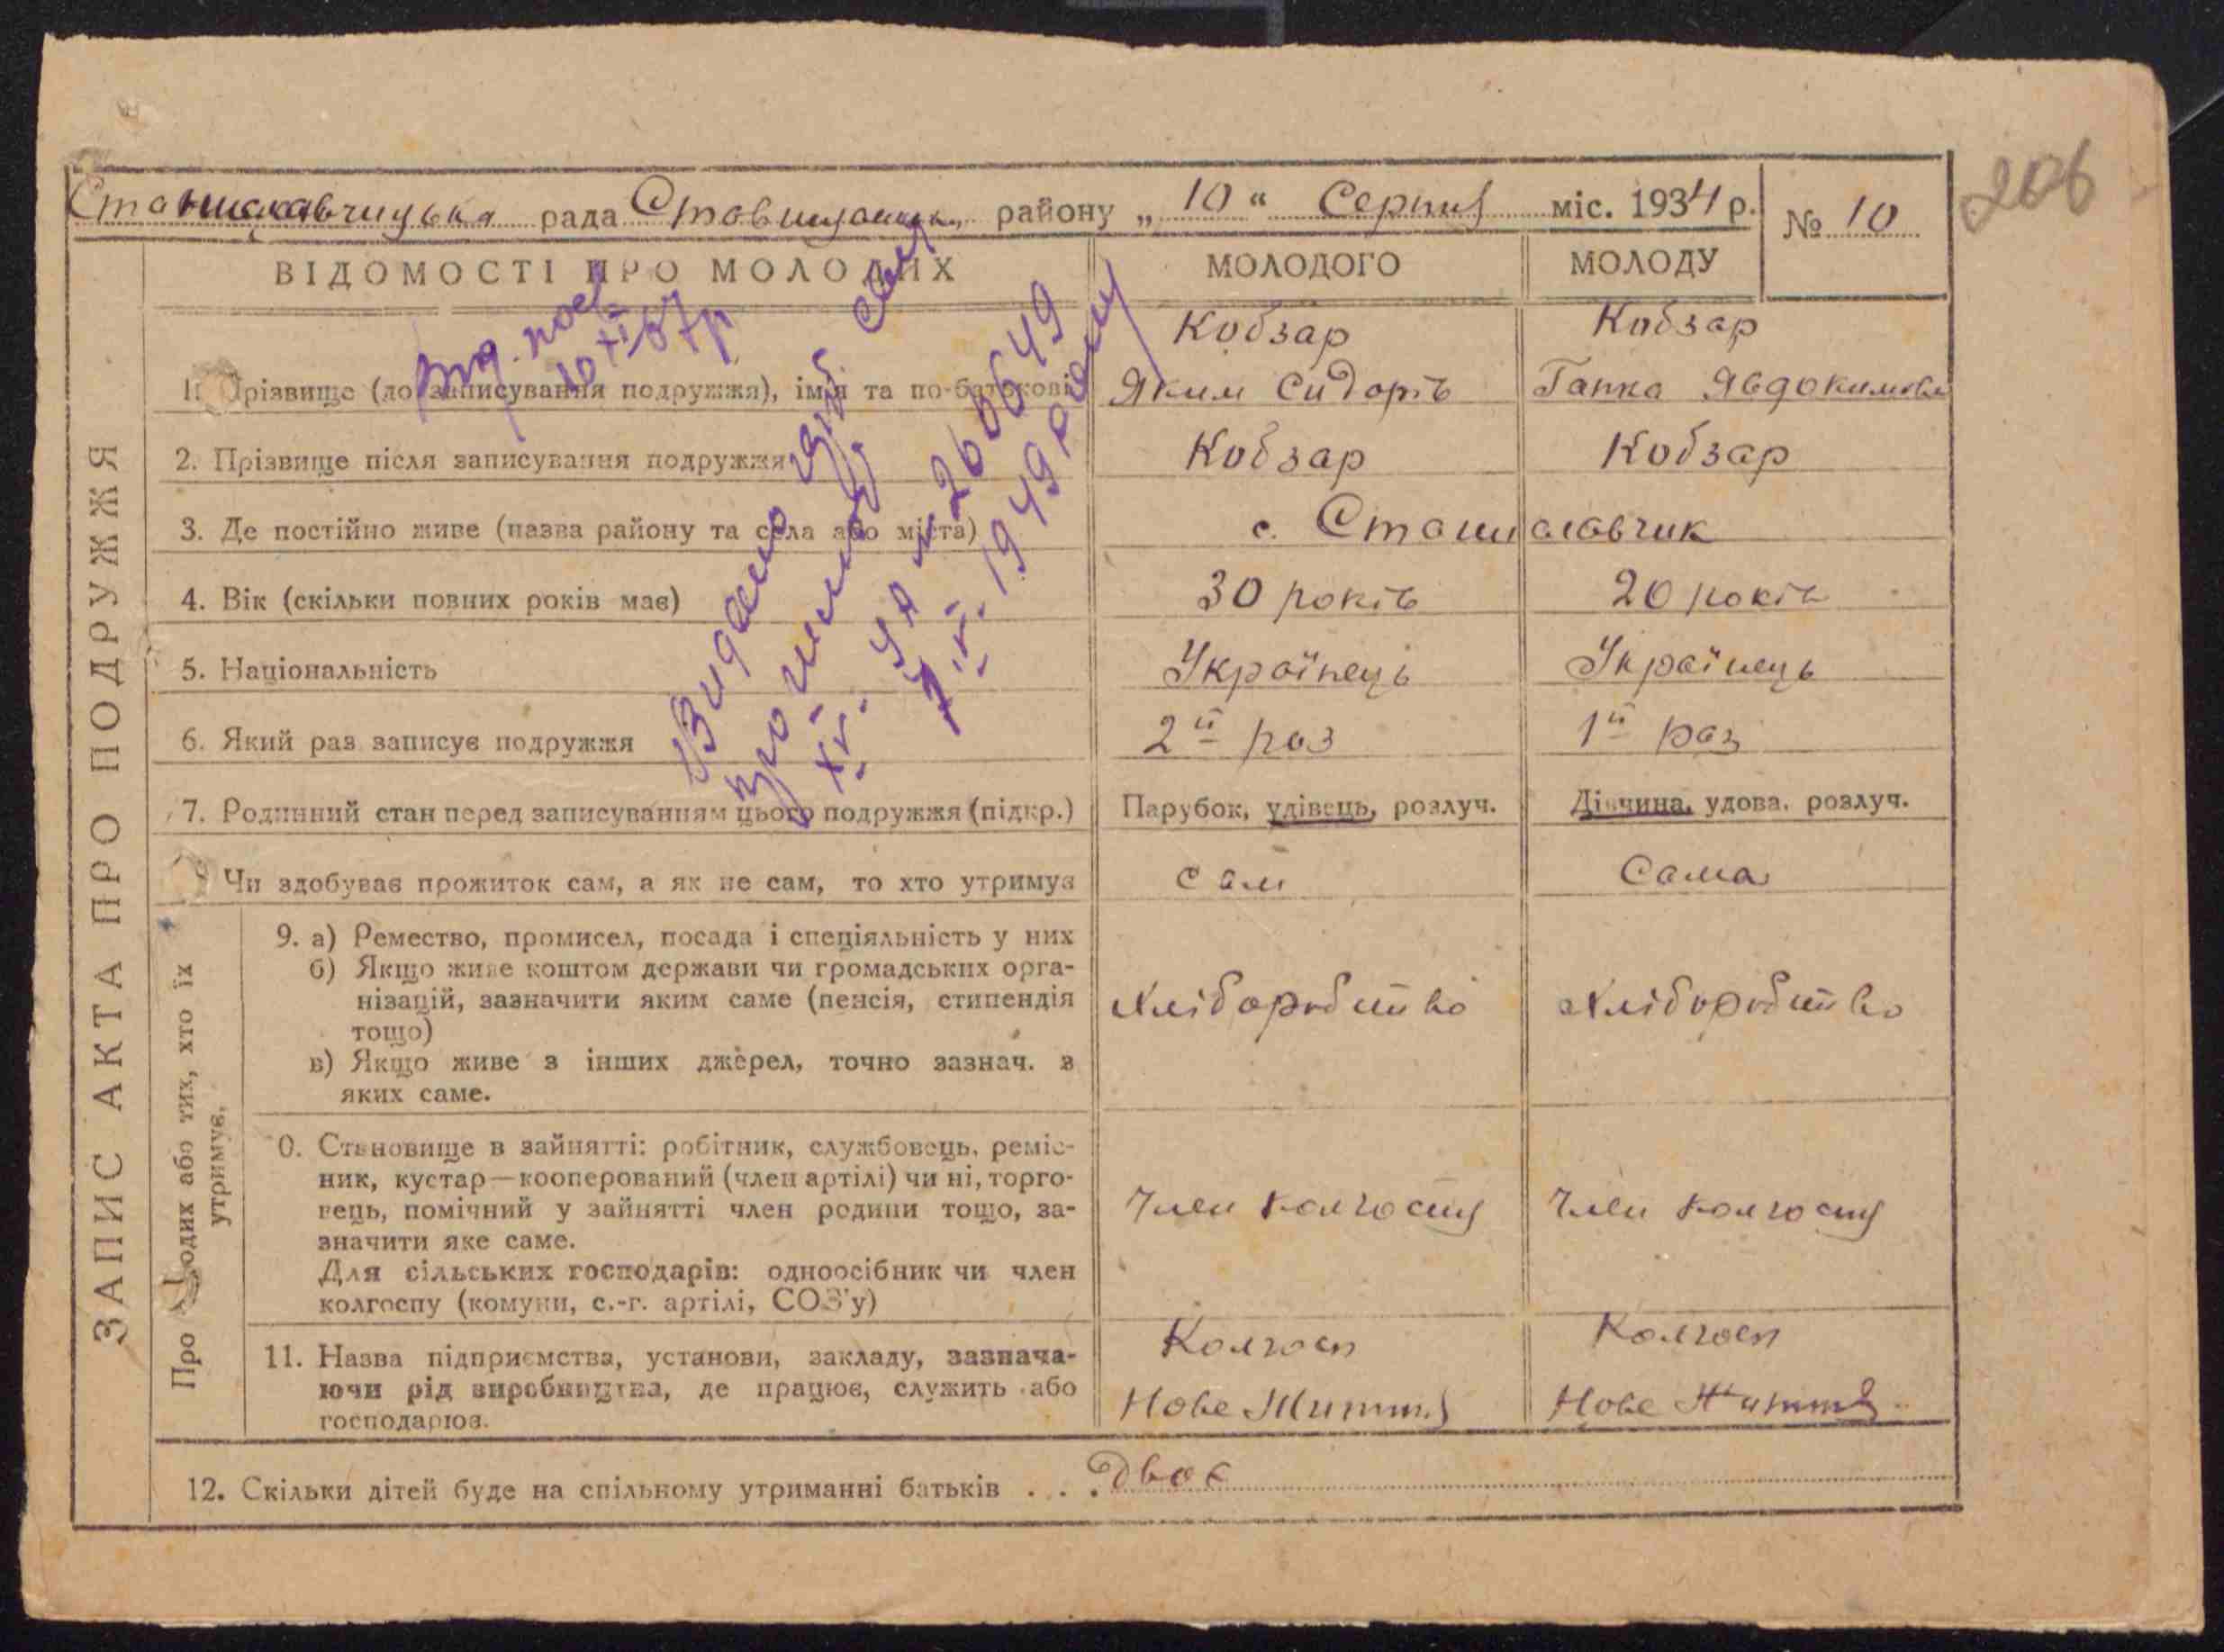 206
Станиславчицька рада Ставищанськ. району „10“ Серпня міс. 1934 р. № 10
ВІДОМОСТІ ПРО МОЛОДИХ МОЛОДОГО МОЛОДУ
Кобзар Кобзар
1. Прізвище (до записування подружжя), ім'я та по-батькові Яким Сидорів Гапка Явдокимова
2. Прізвище після записування подружжя Кобзар Кобзар
3. Де постійно живе (назва району та села або міста) с. Станиславчик
4. Вік (скільки повних років має) 30 років 20 років
5. Національність Українець Українець
6. Який раз записує подружжя 2й раз 1й раз
7. Родинний стан перед записуванням цього подружжя (підкр.) Парубок, удівець, розлуч. Дівчина, удова, розлуч.
Чи здобуває прожиток сам, а як не сам, то хто утримує сам Сама
9. а) Ремество, промисел, посада і спеціяльність у них
б) Якщо живе коштом держави чи громадських орга-
нізацій, зазначити яким саме (пенсія, стипендія Хліборобство Хліборобство
тощо)
в) Якщо живе з інших джерел, точно зазнач. з
яких саме.
0. Становище в зайнятті: робітник, службовець, реміс-
ник, кустар—кооперований (член артілі) чи ні, торго-
вець, помічний у зайнятті член родини тощо, за- Член колгоспу Член колгоспу
значити яке саме.
Для сільських господарів: одноосібник чи член
колгоспу (комуни, с.-г. артілі, СОЗ'у)
Колгосп Колгосп
11. Назва підприємства, установи, закладу, зазнача-
ючи рід виробництва, де працює, служить або Нове Життя Нове Життя
господарює.
12. Скільки дітей буде на спільному утриманні батьків . . . Двоє
ЗАПИС АКТА ПРО ПОДРУЖЖЯ
Про молодих або тих, хто їх
утримує.
10 XI 57р
Видано
1949 року